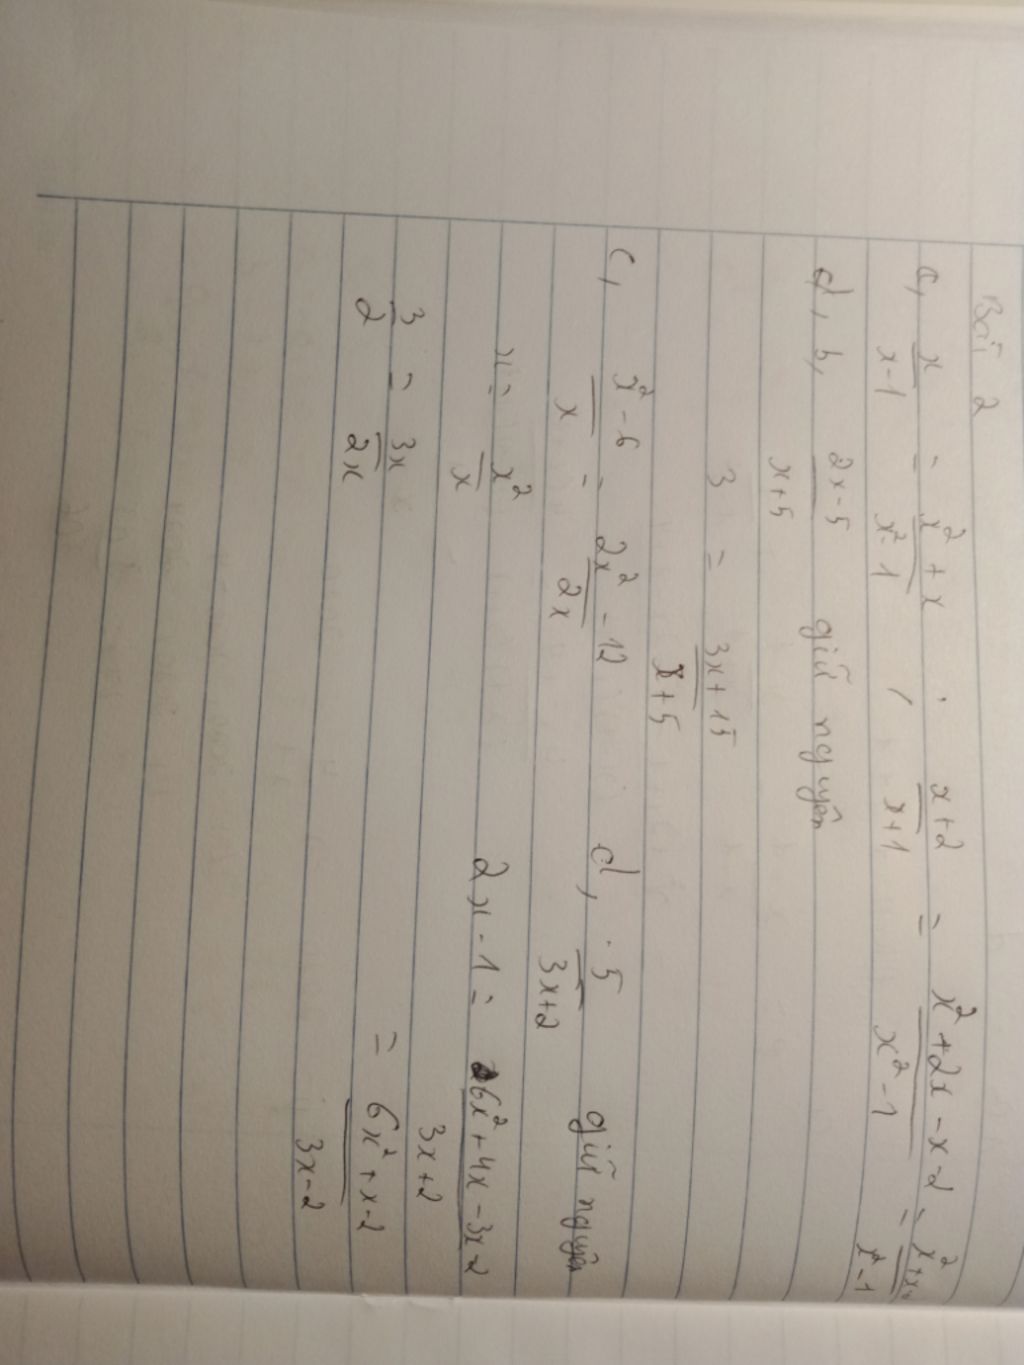 Bài 2
a, x/(x-1) = (x²+x)/(x²-1) , (x+2)/(x+1) = (x²+2x-x-2)/(x²-1) =
d, b, (2x-5)/(x+5) giữ nguyên
3 = (3x+15)/(x+5)
c, (x²-6)/x = (2x²-12)/(2x)
d, 5/(3x+2) giữ nguyên
x = x²/x
2x-1 = (6x²+4x-3x-2)/(3x+2)
3/2 = 3x/(2x)
= (6x²+x-2)/(3x-2)